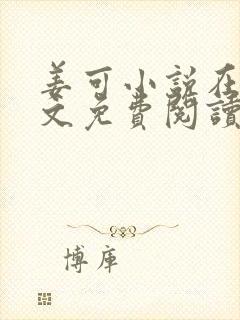 姜可小说在
文免費閱讀
博庫